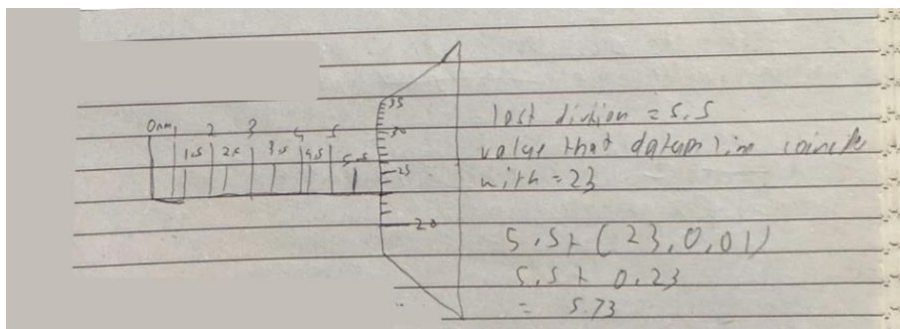 0mm 1 2 3 4 5
1.5 2.5 3.5 4.5 5.5
35
30
25
20
last division = 5.5
value that datum line coincides
with = 23
5.5+ (23,0,01)
5.5 + 0.23
= 5.73